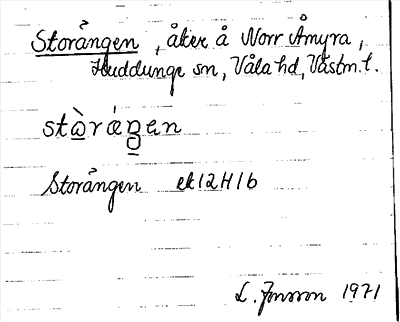 Storängen, åker å Norr Åmyra,
Huddunge sn, Våla hd, Västm. l.
stòráŋen
Storängen ek 12H1b
L. Jonsson 1971